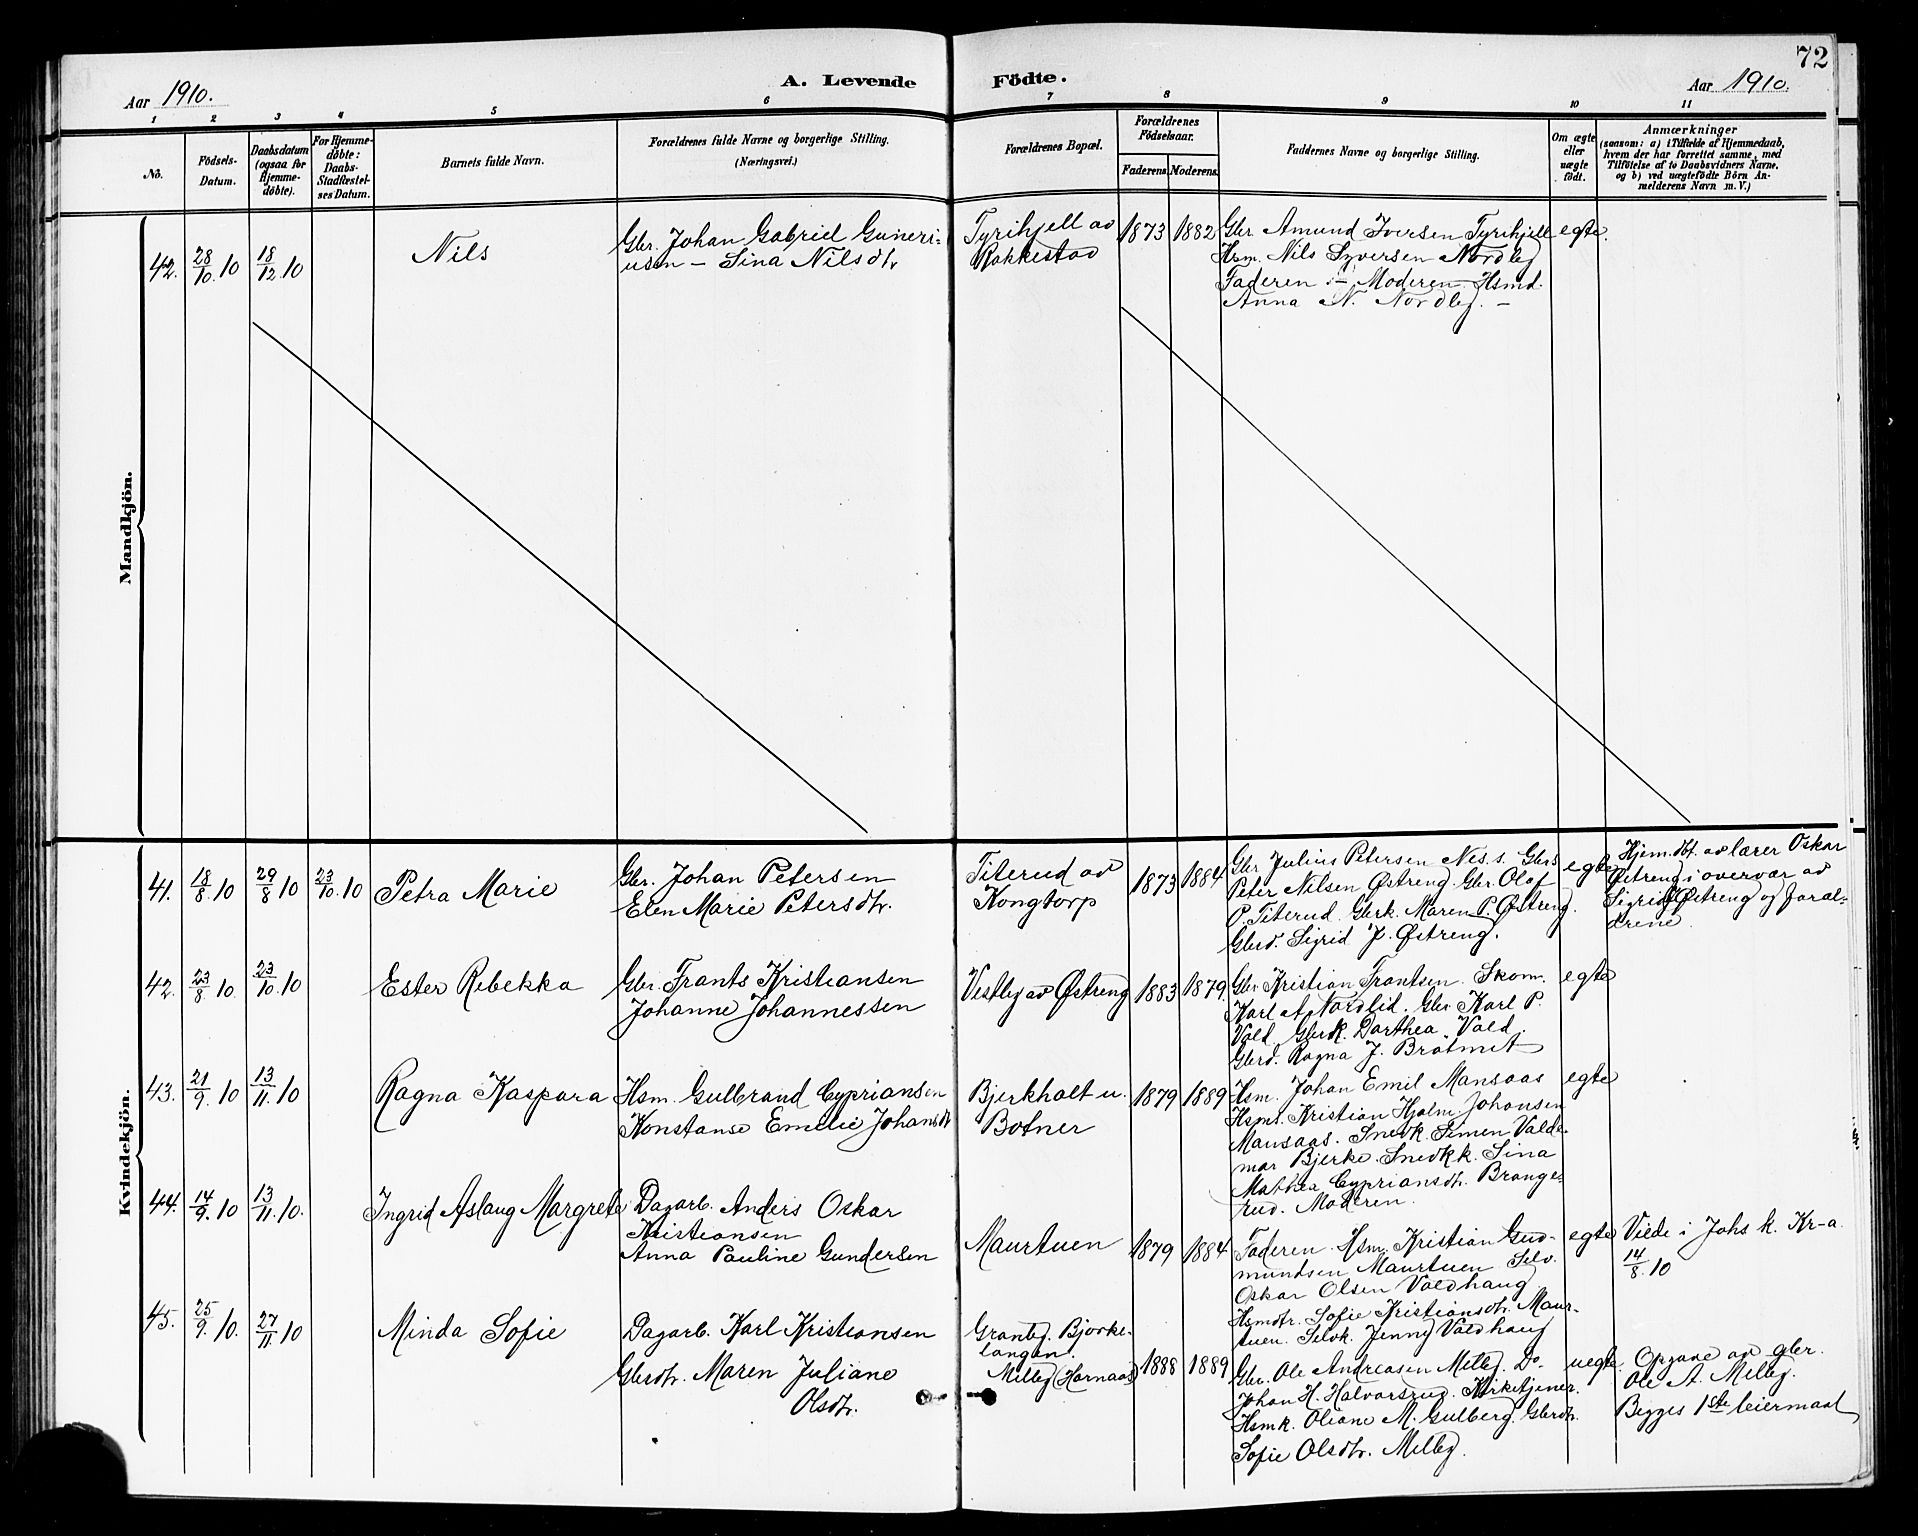 72
Aar 1910.
A. Levende Födte.
Aar 1910.
1 2 3 4 5 6 7 8 9 10 11
No.
Födsels-Datum.
Daabsdatum (ogsaa for Hjemme-döbte).
For Hjemme-döbte: Daabs-Stadfæstel-ses Datum.
Barnets fulde Navn.
Forældrenes fulde Navne og borgerlige Stilling.
(Næringsvei.)
Forældrenes Bopæl.
Forældrenes Födselsaar.
Faderens Moderens.
Faddernes Navne og borgerlige Stilling.
Om ægte eller uægte födt.
Anmærkninger
(saasom: a) i Tilfælde af Hjemmedaab,
hvem der har forrettet samme, med
Tilföielse af to Daabsvidners Navne,
og b) ved uægtefödte Börn An-
melderens Navn m. V.)
Mandkjön.
42. 28/10.10 18/12.10 Nils
Gbr. Johan Gabriel Guneri-
usen – Lina Nilsdtr
Tyrihjell av
Rakkestad
1873 1882
Gbr. Amund Iversen Tyrihjell
Hsm. Nils Syversen Nordby
Faderen – Moderen. Hsmd.
Anna N. Nordby. –
egte.
Kvindekjön.
41. 18/8 10 29/8 10 23/10.10 Petra Marie
Gbr. Johan Petersen
Elen Marie Petersdtr.
Titerud av
Kongtorp
1873 1884
Gbr Julius Petersen Nes. s. Gbrs
Peter Nilsen Østreng. Gbr. Olof
P. Titerud. Gbrk. Maren P. Østreng.
Gbrd. Sigrid J. Østreng.
egte
Hjem.dbt. av lærer Oskar
Østreng i overvær av
Sigrid Østreng og foræl-
drene.
42. 23/8.10. 23/10.10 Ester Rebekka
Gbr. Frants Kristiansen
Johanne Johannessen
Vestby av Østreng
1883 1879.
Gbr Kristian Frantsen. Skom.
Karl A Nordlid. Gbr Karl P.
Vold. Gbrk. Dorthea Vold.
Gbrd. Ragna J. Bråtmit
egte
43. 21/9. 10 13/11.10 Ragna Kaspara
Hsm. Gulbrand Cypriansen
Konstanse Emelie Johansdt
Bjerkholt u.
Botner
1879 1889
Hsm. Johan Emil Mansaas
Hsms. Kristian Hjalm. Johansen
Mansaas. Snedk. Simen Valde-
mar Bjerke. Snedkk. Lina
Mathea Cypriansdtr. Brange-
rud. Moderen.
egte
44. 14/9. 10 13/11.10. Ingrid Aslaug Margrete
Dagarb. Anders Oskar
Kristiansen
Anna Pauline Gundersen
Maurtuen
1879 1884
Faderen. Hsm. Kristian Gud-
mundsen Maurtuen. Selv.
Oskar Olsen Valdhaug
Hsmdtr. Sofie Kristiansdtr. Maur-
tuen. Selvk. Jenny Valdhaug
egte
Viede i Johs k. Kr-a.
14/8.10
45. 25/9.10. 27/11.10 Minda Sofie
Dagarb. Karl Kristiansen
Gbrdtr. Maren Juliane
Olsdtr.
Granby. Bjørke-
langen.
Melby (Hornaas)
1888 1889
Gbr. Ole Andreasen Melby. Do.
Johan H. Halvorsrud. Kirketjener.
Hsmk. Oliane M. Gulberg. Gbrdtr.
Sofie Olsdtr. Melby.
uegte.
Opgave av gbr.
Ole A. Melby.
Begges 1ste leiermaal